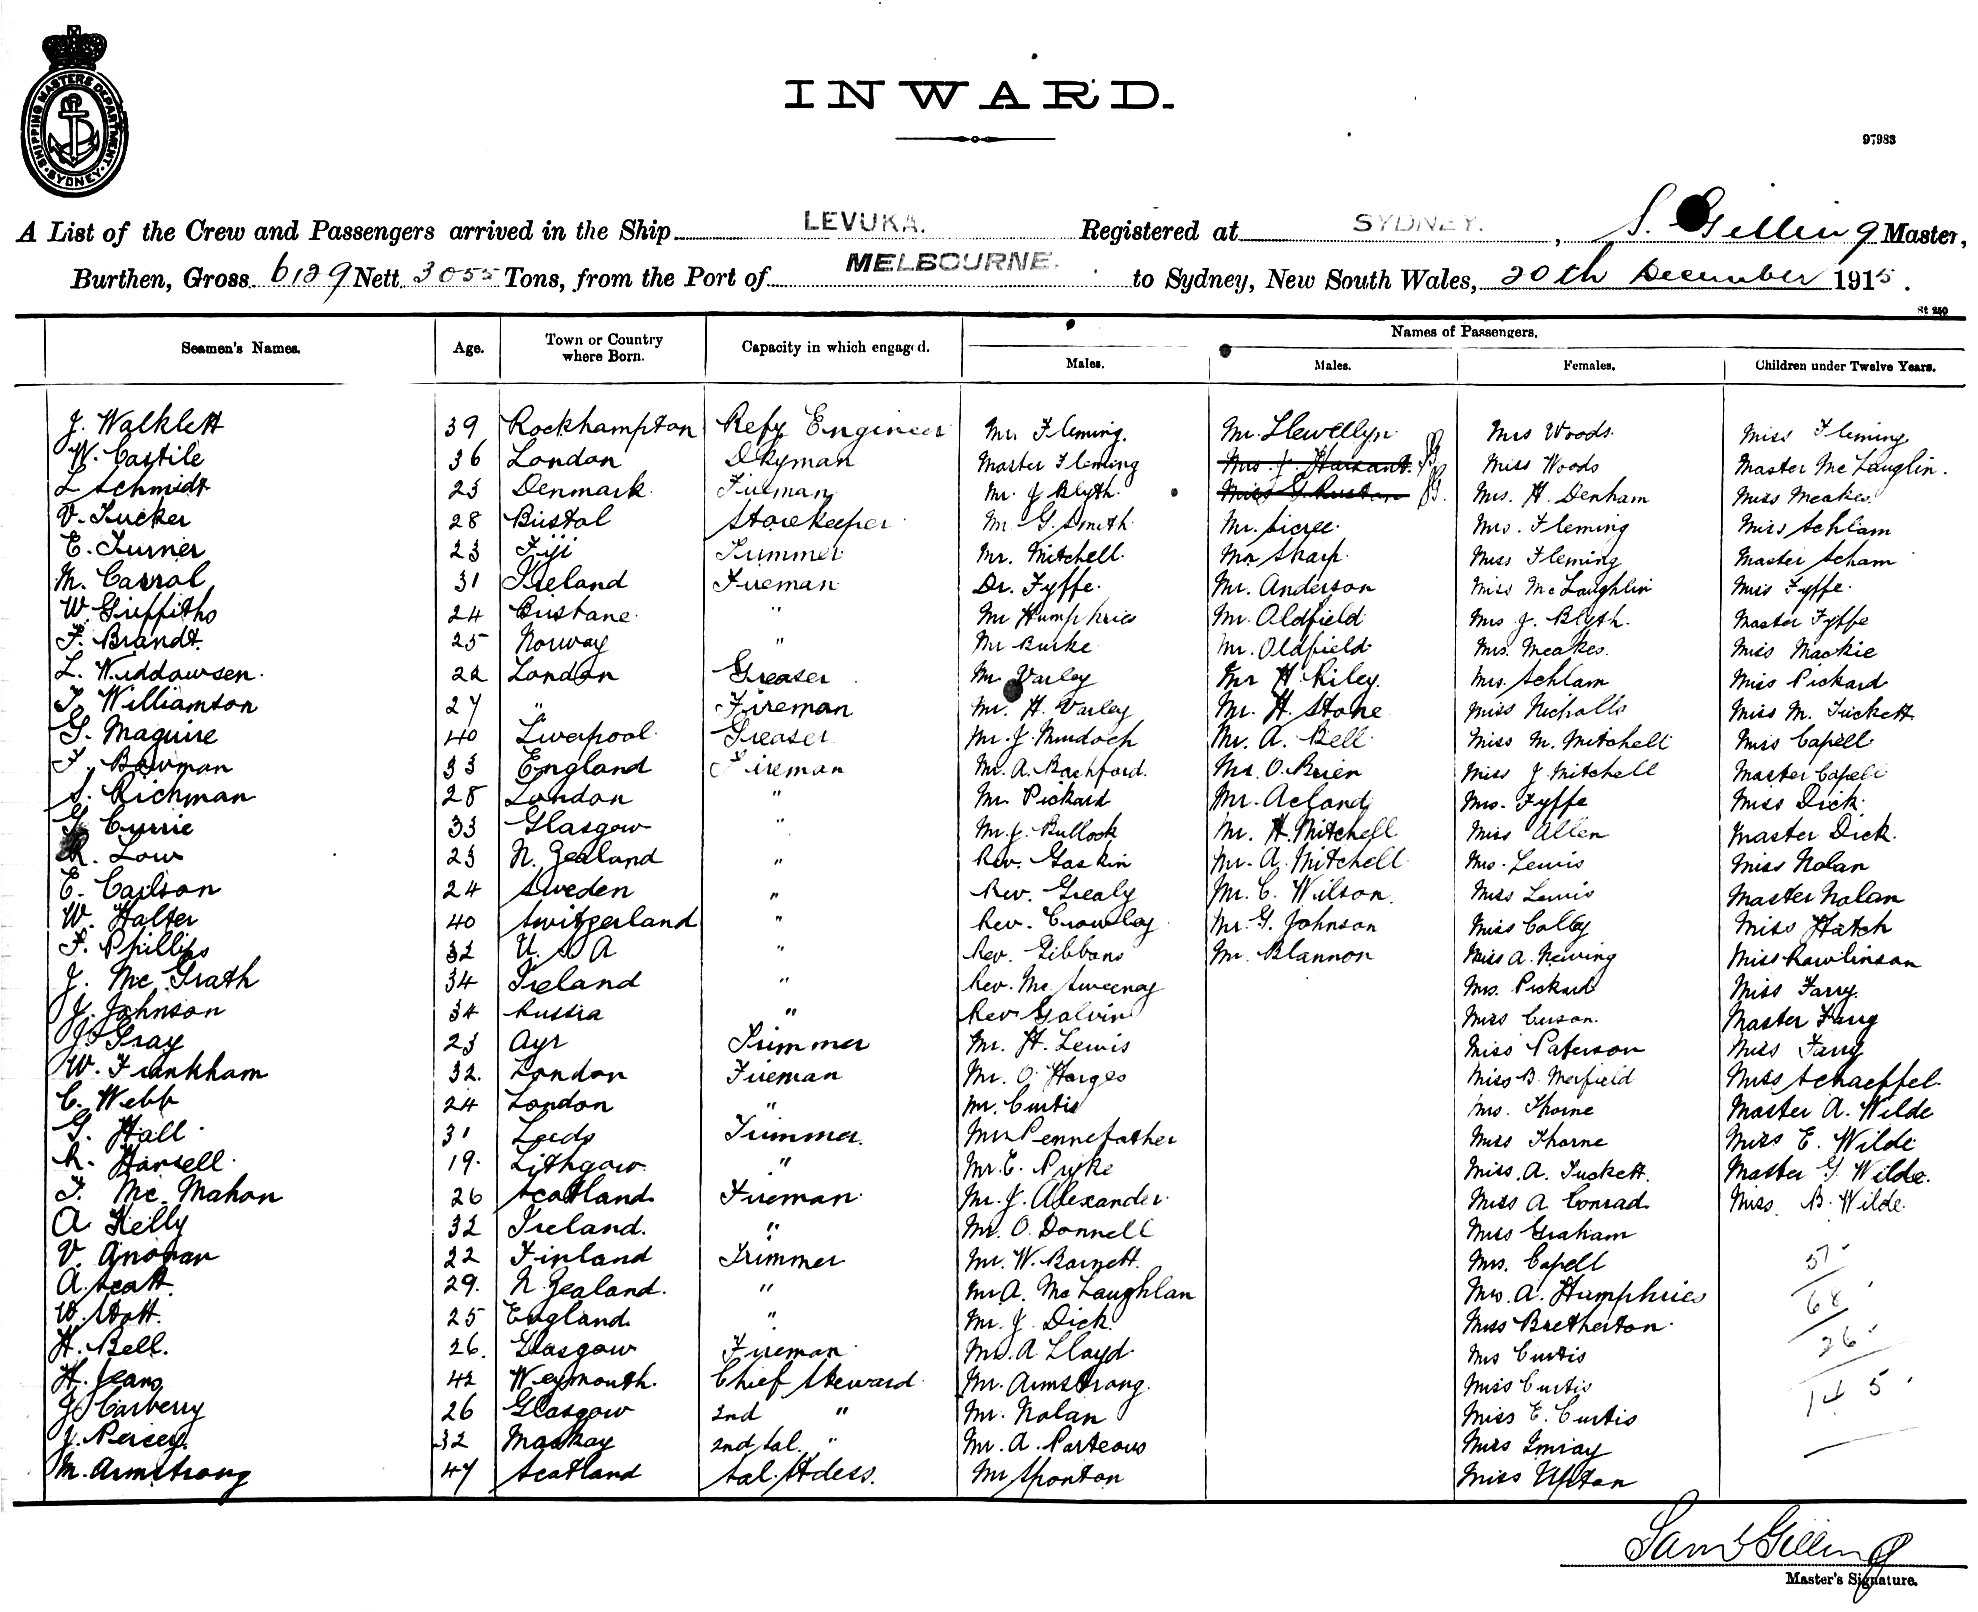 SHIPPING MASTERS DEPARTMENT
SYDNEY
INWARD.
97983
A List of the Crew and Passengers arrived in the Ship LEVUKA. Registered at SYDNEY. , S. Gilling Master,
Burthen, Gross 6129 Nett 3055 Tons, from the Port of MELBOURNE. to Sydney, New South Wales, 20th December 1915.
St 250
Names of Passengers.
Seamen's Names. Age. Town or Country where Born. Capacity in which engaged. Males. Males. Females. Children under Twelve Years.
J. Walklett 39 Rockhampton Refg Engineer Mr. Fleming. Mr. Llewellyn Mrs Woods. Miss Fleming
W. Castile 36 London Dkyman Master Fleming Mrs. J. Harsant. Miss Woods Master McLauglin.
L Schmidt 25 Denmark. Fireman Mr. J Blyth. Miss G. Ruston Mrs. H. Denham Miss Meakes.
V. Tucker 28 Bristol Storekeeper Mr G. Smith. Mr. Sicree. Mrs. Fleming Miss Schlam
E. Turner 23 Fiji Trimmer Mr. Mitchell. Mr Sharp. Miss Fleming Master Scham
M. Carrol 31 Ireland Fireman Dr. Fyffe. Mr. Anderson Miss McLaughlin Miss Fyffe.
W. Griffiths 24 Brisbane. " Mr Humphries Mr. Oldfield Mrs J. Blyth. Master Fyffe
F. Brandt. 25 Norway " Mr Burke Mr. Oldfield Mrs. Meakes. Miss Mackie
L. Widdowsen. 22 London Greaser Mr Varley Mr H Riley. Mrs. Schlam Miss Pickard
T. Williamson 27 " Fireman Mr. H. Varley Mr. H. Stone Miss Nicholls Miss M. Tuckett
G. Maguire 40 Liverpool. Greaser Mr. J. Murdoch Mr. A. Bell. Miss M. Mitchell Miss Capell
F. Bowman 33 England Fireman Mr. A. Bachford. Mr. O. Brien Miss J Mitchell Master Capell
S. Richman 28 London " Mr Pickard Mr. Acland Mrs. Fyffe Miss Dick.
G Currie 33 Glasgow " Mr. J. Bullock Mr. H. Mitchell Miss Allen Master Dick.
R. Low 23 N. Zealand " Rev. Gaskin Mr. A. Mitchell. Mrs. Lewis Miss Nolan
E. Carlson 24 Sweden " Rev. Grealy Mr. C. Wilson. Miss Lewis Master Nolan
W. Halter 40 Switzerland " Rev. Crowley Mr. G. Johnson Miss Colley Miss Hatch
F. Phillips 32 U. S A " Rev. Gibbons Mr. Blannon Miss A. Newing Miss Rawlinson
J. McGrath 34 Ireland " Rev. McSweeney Mrs. Pickard Miss Farry.
J. Johnson 34 Russia " Rev. Galvin Miss Cuson. Master Farry
J Gray 23 Ayr Trimmer Mr. H. Lewis Miss Paterson Miss Farry
W. Frankham 32. London Fireman Mr. O Harges Miss B. Merfield Miss Schaeffel
C. Webb 24 London " Mr. Curtis Mrs. Thorne Master A. Wilde
G. Hall. 31 Leeds Trimmer. Mr Pennefather Miss Thorne Miss E. Wilde
R. Hansell. 19. Lithgow. " Mr. E. Pyke Miss. A. Tuckett. Master G. Wilde.
T. McMahon 26 Scotland. Fireman. Mr. J. Alexander. Miss A Conrad. Miss. B. Wilde.
A Kelly 32 Ireland. " Mr. O. Donnell Miss Graham
V. 22 Finland Trimmer Mr. W. Barnett. Mrs. Capell 51
A. Scott. 29. N. Zealand. " Mr A. McLaughlan Mrs. A. Humphries 68
W. Stott. 25 England. " Mr. J. Dick. Miss Bretherton. 26
H. Bell. 26. Glasgow Fireman. Mr. A Lloyd. Mrs Curtis
H. Jeans 42 Weymouth. Chief Steward Mr. Armstrong. Miss Curtis 145
J. Carberry 26 Glasgow 2nd " Mr. Nolan Miss E. Curtis
J. Persey. 32 Mackay 2nd Sal. " Mr. A. Porteous Miss Imray
M. Armstrong 47 Scotland Sal. Stdess. Mr Sponton Miss Upton
Saml Gilling
Master's Signature.